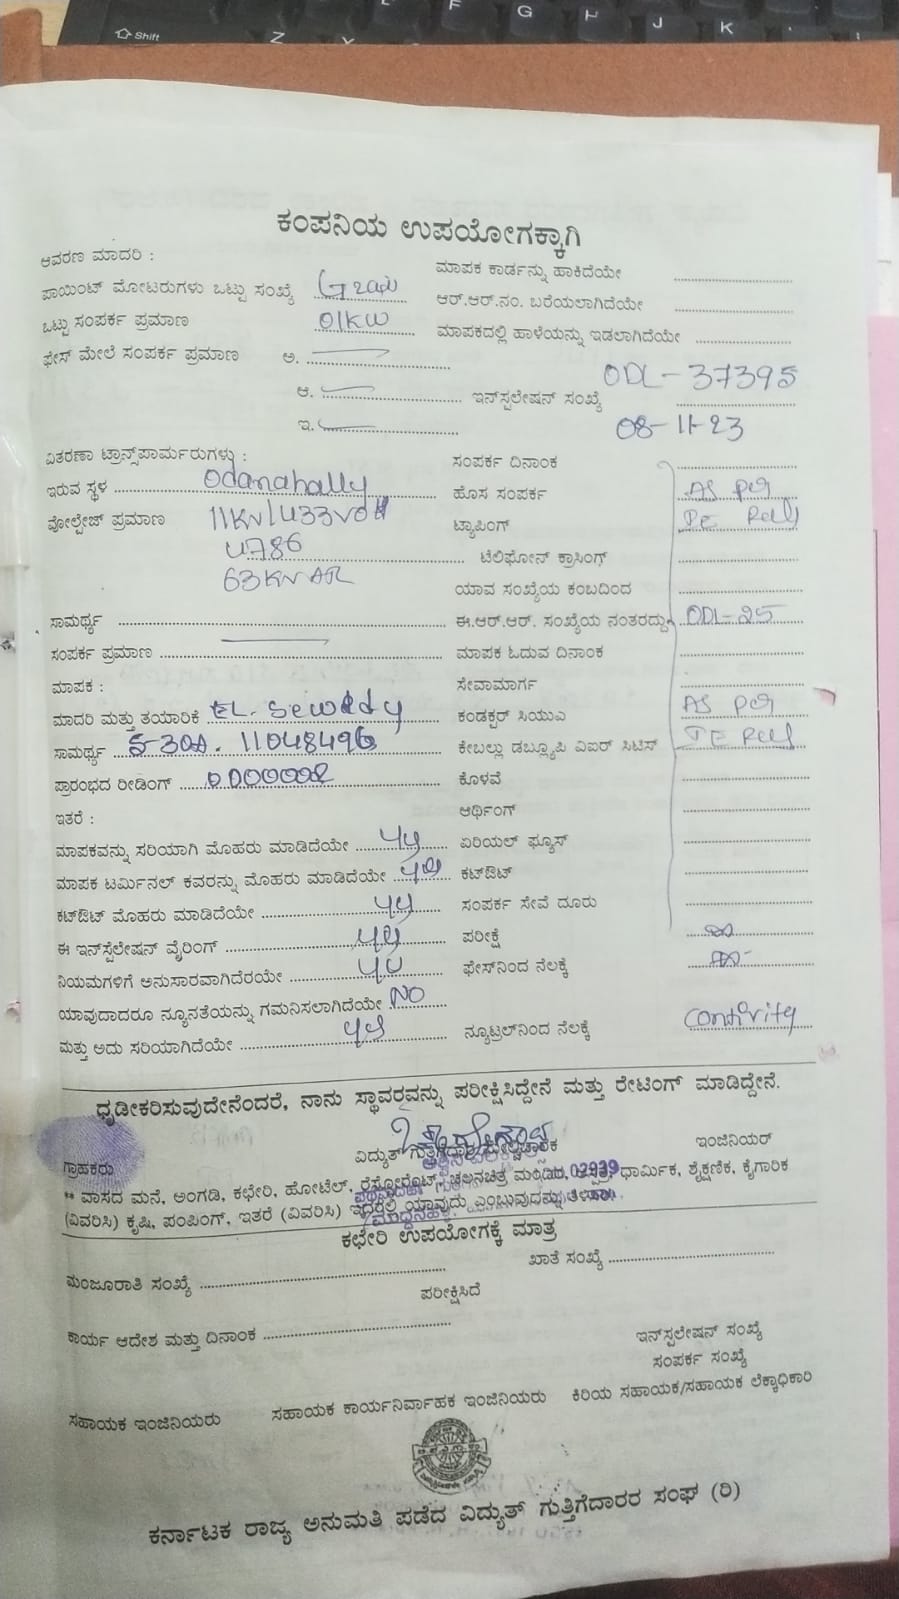 Shift
Z
F
G
H
J
K
L
ಕಂಪನಿಯ ಉಪಯೋಗಕ್ಕಾಗಿ
ಆವರಣ ಮಾದರಿ : ಮಾಪಕ ಕಾರ್ಡನ್ನು ಹಾಕಿದೆಯೇ
ಪಾಯಿಂಟ್ ಮೋಟರುಗಳು ಒಟ್ಟು ಸಂಖ್ಯೆ ಆರ್.ಆರ್.ನಂ. ಬರೆಯಲಾಗಿದೆಯೇ
ಒಟ್ಟು ಸಂಪರ್ಕ ಪ್ರಮಾಣ 01KW ಮಾಪಕದಲ್ಲಿ ಹಾಳೆಯನ್ನು ಇಡಲಾಗಿದೆಯೇ
ಫೇಸ್ ಮೇಲೆ ಸಂಪರ್ಕ ಪ್ರಮಾಣ ಅ.
ಆ. ಇನ್‌ಸ್ಟಲೇಷನ್ ಸಂಖ್ಯೆ ODL-37395
ಇ. 08-11-23
ವಿತರಣಾ ಟ್ರಾನ್ಸ್‌ಪಾರ್ಮರುಗಳು : ಸಂಪರ್ಕ ದಿನಾಂಕ
ಇರುವ ಸ್ಥಳ Odanahally ಹೊಸ ಸಂಪರ್ಕ As per
ವೋಲ್ಟೇಜ್ ಪ್ರಮಾಣ 11KV/433Vo ಟ್ಯಾಪಿಂಗ್
4786 ಟೆಲಿಫೋನ್ ಕ್ರಾಸಿಂಗ್
63KVAR ಯಾವ ಸಂಖ್ಯೆಯ ಕಂಬದಿಂದ
ಸಾಮರ್ಥ್ಯ ಈ.ಆರ್.ಆರ್. ಸಂಖ್ಯೆಯ ನಂತರದ್ದು ODL-25
ಸಂಪರ್ಕ ಪ್ರಮಾಣ ಮಾಪಕ ಓದುವ ದಿನಾಂಕ
ಮಾಪಕ : ಸೇವಾಮಾರ್ಗ
ಮಾದರಿ ಮತ್ತು ತಯಾರಿಕೆ EL. Sewedy ಕಂಡಕ್ಟರ್ ಸಿಯುಎ As per
ಸಾಮರ್ಥ್ಯ 5-30A. 11048496 ಕೇಬಲ್ಲು ಡಬ್ಲ್ಯೂಪಿ ಎಐರ್ ಸಿಟಿಸ್
ಪ್ರಾರಂಭದ ರೀಡಿಂಗ್ ಕೊಳವೆ
ಇತರೆ : ಆರ್ಥಿಂಗ್
ಮಾಪಕವನ್ನು ಸರಿಯಾಗಿ ಮೊಹರು ಮಾಡಿದೆಯೇ ಏರಿಯಲ್ ಫ್ಯೂಸ್
ಮಾಪಕ ಟರ್ಮಿನಲ್ ಕವರನ್ನು ಮೊಹರು ಮಾಡಿದೆಯೇ ಕಟ್‌ಔಟ್
ಕಟ್‌ಔಟ್ ಮೊಹರು ಮಾಡಿದೆಯೇ ಸಂಪರ್ಕ ಸೇವೆ ದೂರು
ಈ ಇನ್‌ಸ್ಟೆಲೇಷನ್ ವೈರಿಂಗ್ ಪರೀಕ್ಷೆ
ನಿಯಮಗಳಿಗೆ ಅನುಸಾರವಾಗಿದೆರಯೇ ಫೇಸ್‌ನಿಂದ ನೆಲಕ್ಕೆ
ಯಾವುದಾದರೂ ನ್ಯೂನತೆಯನ್ನು ಗಮನಿಸಲಾಗಿದೆಯೇ NO
ಮತ್ತು ಅದು ಸರಿಯಾಗಿದೆಯೇ ನ್ಯೂಟ್ರಲ್‌ನಿಂದ ನೆಲಕ್ಕೆ
ಧೃಡೀಕರಿಸುವುದೇನೆಂದರೆ, ನಾನು ಸ್ಥಾವರವನ್ನು ಪರೀಕ್ಷಿಸಿದ್ದೇನೆ ಮತ್ತು ರೇಟಿಂಗ್ ಮಾಡಿದ್ದೇನೆ.
ಗ್ರಾಹಕರು ವಿದ್ಯುತ್ ಇಂಜಿನಿಯರ್
** ವಾಸದ ಮನೆ, ಅಂಗಡಿ, ಕಛೇರಿ, ಹೋಟೆಲ್, ರೆಸ್ಟೋರೆಂಟ್, ಚಲನಚಿತ್ರ ಮಂದಿರ, ಧಾರ್ಮಿಕ, ಶೈಕ್ಷಣಿಕ, ಕೈಗಾರಿಕ
(ವಿವರಿಸಿ) ಕೃಷಿ, ಪಂಪಿಂಗ್, ಇತರೆ (ವಿವರಿಸಿ) ಇದರಲ್ಲಿ ಯಾವುದು ಎಂಬುವುದನ್ನು ತಿಳಿಸಿ
ಕಛೇರಿ ಉಪಯೋಗಕ್ಕೆ ಮಾತ್ರ
ಮಂಜೂರಾತಿ ಸಂಖ್ಯೆ ಖಾತೆ ಸಂಖ್ಯೆ
ಪರೀಕ್ಷಿಸಿದೆ
ಕಾರ್ಯ ಆದೇಶ ಮತ್ತು ದಿನಾಂಕ ಇನ್‌ಸ್ಟಲೇಷನ್ ಸಂಖ್ಯೆ
ಸಂಪರ್ಕ ಸಂಖ್ಯೆ
ಸಹಾಯಕ ಇಂಜಿನಿಯರು ಸಹಾಯಕ ಕಾರ್ಯನಿರ್ವಾಹಕ ಇಂಜಿನಿಯರು ಕಿರಿಯ ಸಹಾಯಕ/ಸಹಾಯಕ ಲೆಕ್ಕಾಧಿಕಾರಿ
ಕರ್ನಾಟಕ ರಾಜ್ಯ ಅನುಮತಿ ಪಡೆದ ವಿದ್ಯುತ್ ಗುತ್ತಿಗೆದಾರರ ಸಂಘ (ರಿ)